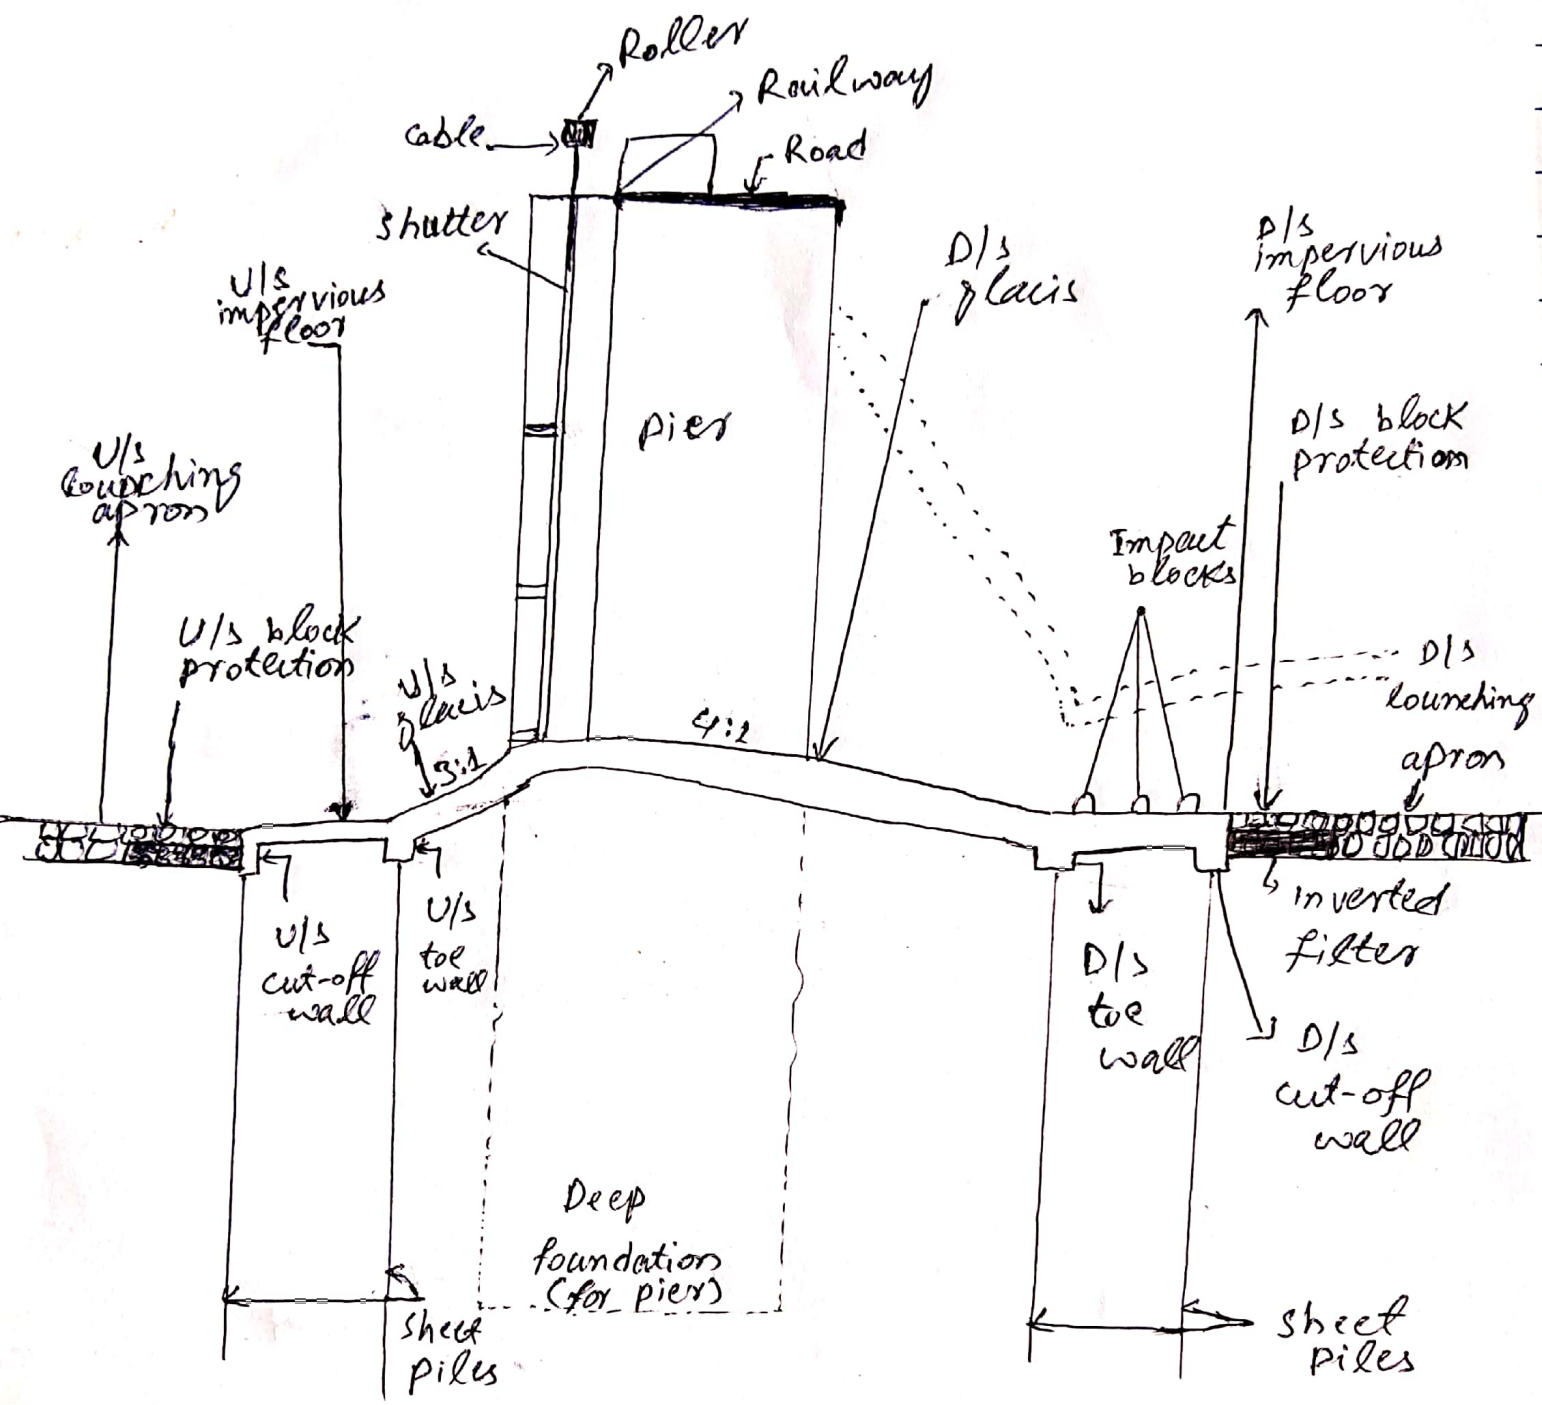 Roller
Railway
Cable
Road
Shutter
D/s
glacis
D/s
impervious
floor
U/s
impervious
floor
Pier
D/s block
protection
U/s
lounching
apron
Impact
blocks
U/s block
protection
U/s
glacis
3:1
4:1
D/s
lounching
apron
inverted
filter
U/s
cut-off
wall
U/s
toe
wall
D/s
toe
wall
D/s
cut-off
wall
Deep
foundation
(for pier)
Sheet
piles
Sheet
piles